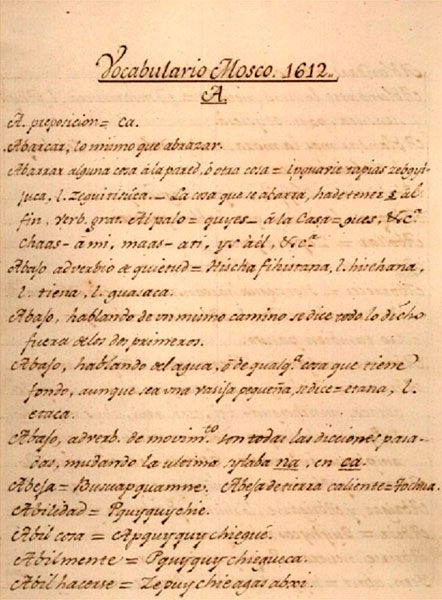 Vocabulario Mosco. 1612.
A.
A. preposicion = ca.
Abarcar, lo mismo que abrazar.
Abarrar alguna cosa àla pared, ò otra cosa = Ipquarie tapias zebgyi-
suca, l. zeguitisuca. – La cosa que se abarra, hade tener s al
fin. Verb. grat. Al palo = quyes – à la Casa = gues, &c.ª
chaas – à mi, maas – a ti, ys àèl, &c.ª
Abajo adverbio de quietud = Hischa fihistana, l. hischana,
l. tiena, l. guasaca.
Abajo, hablando de un mismo camino se dice todo lo dicho
fuera delos dos primeros.
Abajo, hablando del agua, ò de qualq.ª cosa que tiene
fondo, aunque sea vna vasija pequeña, se dice = etana, l.
etaca.
Abajo, adverb. de movim.to son todas las dicciones pasa-
das, mudando la ultima sylaba na, en ca.
Abeja = Busuapquamne. Abeja de tierra caliente = Tochua.
Abilidad = Pquyquychie.
Abil cosa = Apquyquychiegué.
Abilmente = Pquyquychiegueca.
Abil hacerse = Zepuychieagas abai.